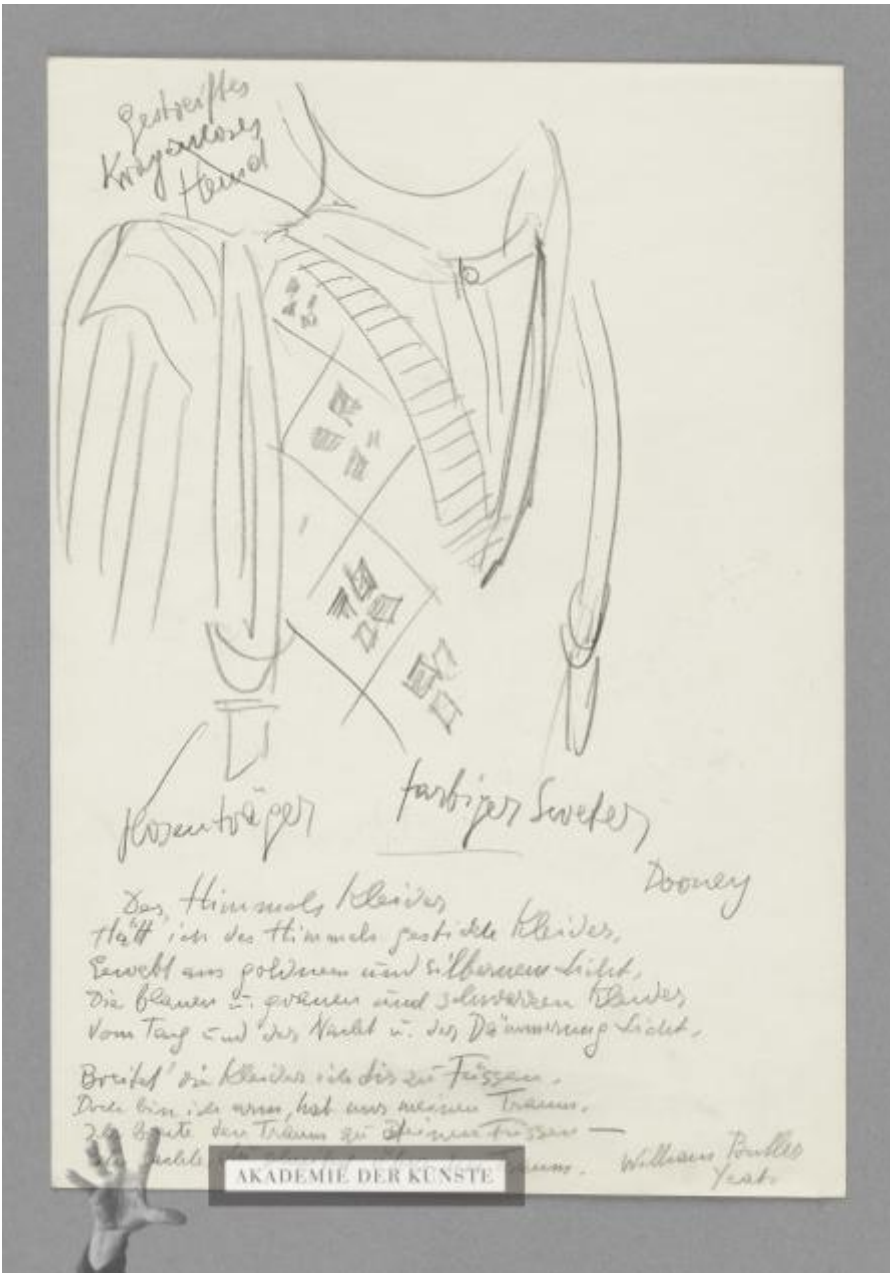 gestreiftes
Kragenloses
Hemd
Hosenträger
farbiger Sweter
Dooney
Des Himmels Kleider
Hätt' ich des Himmels gestickte Kleider,
Gewebt aus goldnem und silbernem Licht,
Die blauen u. grauen und schwarzen Kleider
Vom Tag und der Nacht u. der Dämmerung Licht,
Breitet' die Kleider ich dir zu Füssen.
Doch bin ich arm, hab nur meinen Traum.
den Traum zu Deinen Füssen —
Traum.
William Butler
Yeats
AKADEMIE DER KÜNSTE